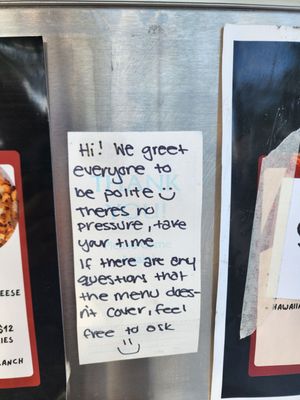 Hi! We greet
everyone to
be polite
theres no
pressure, take
your time
If there are any
questions that
the menu does-
n't cover, feel
free to ask
EESE
$12
IES
LANCH
HAWAIIA